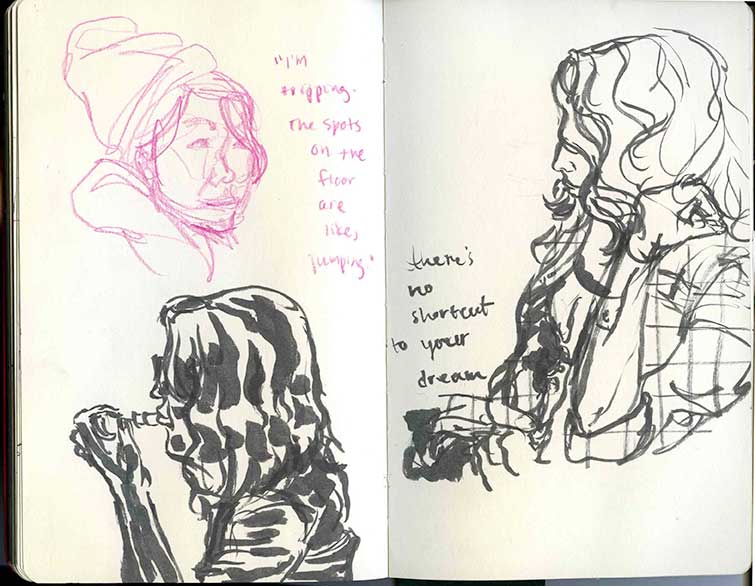 "I'm
tripping.
The spots
on the
floor
are
like,
jumping."
there's
no
shortcut
to your
dream